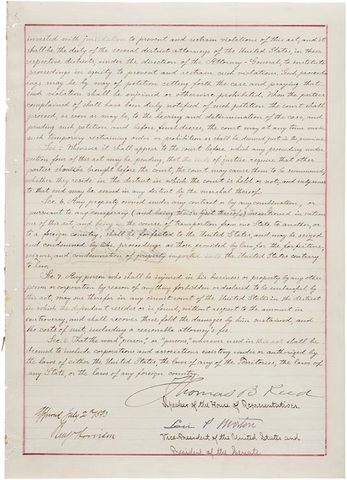 invested with jurisdiction to prevent and restrain violations of this act; and it
shall be the duty of the several district attorneys of the United States, in their
respective districts, under the direction of the Attorney-General, to institute
proceedings in equity to prevent and restrain such violations. Such proceedings
may be by way of petition setting forth the case and praying that
such violation shall be enjoined or otherwise prohibited. When the parties
complained of shall have been duly notified of such petition the court shall
proceed, as soon as may be, to the hearing and determination of the case; and
pending such petition and before final decree, the court may at any time make
such temporary restraining order or prohibition as shall be deemed just in the premises.
Sec. 5. Whenever it shall appear to the court before which any proceeding under
section four of this act may be pending, that the ends of justice require that other
parties should be brought before the court, the court may cause them to be summoned,
whether they reside in the district in which the court is held or not; and subpoenas
to that end may be served in any district by the marshal thereof.
Sec. 6. Any property owned under any contract or by any combination, or
pursuant to any conspiracy (and being the subject thereof) mentioned in section
one of this act, and being in the course of transportation from one State to another, or
to a foreign country, shall be forfeited to the United States, and may be seized
and condemned by like proceedings as those provided by law for the forfeiture,
seizure, and condemnation of property imported into the United States contrary
to law.
Sec. 7. Any person who shall be injured in his business or property by any other
person or corporation by reason of anything forbidden or declared to be unlawful by
this act, may sue therefor in any circuit court of the United States in the district
in which the defendant resides or is found, without respect to the amount in
controversy, and shall recover three fold the damages by him sustained, and
the costs of suit, including a reasonable attorney's fee.
Sec. 8. That the word "person," or "persons," wherever used in this act shall be
deemed to include corporations and associations existing under or authorized by
the laws of either the United States, the laws of any of the Territories, the laws of
any State, or the laws of any foreign country.
Thomas B Reed
Speaker of the House of Representatives.
Approved July 2d 1890
Benj Harrison
Levi P. Morton
Vice-President of the United States and
President of the Senate.